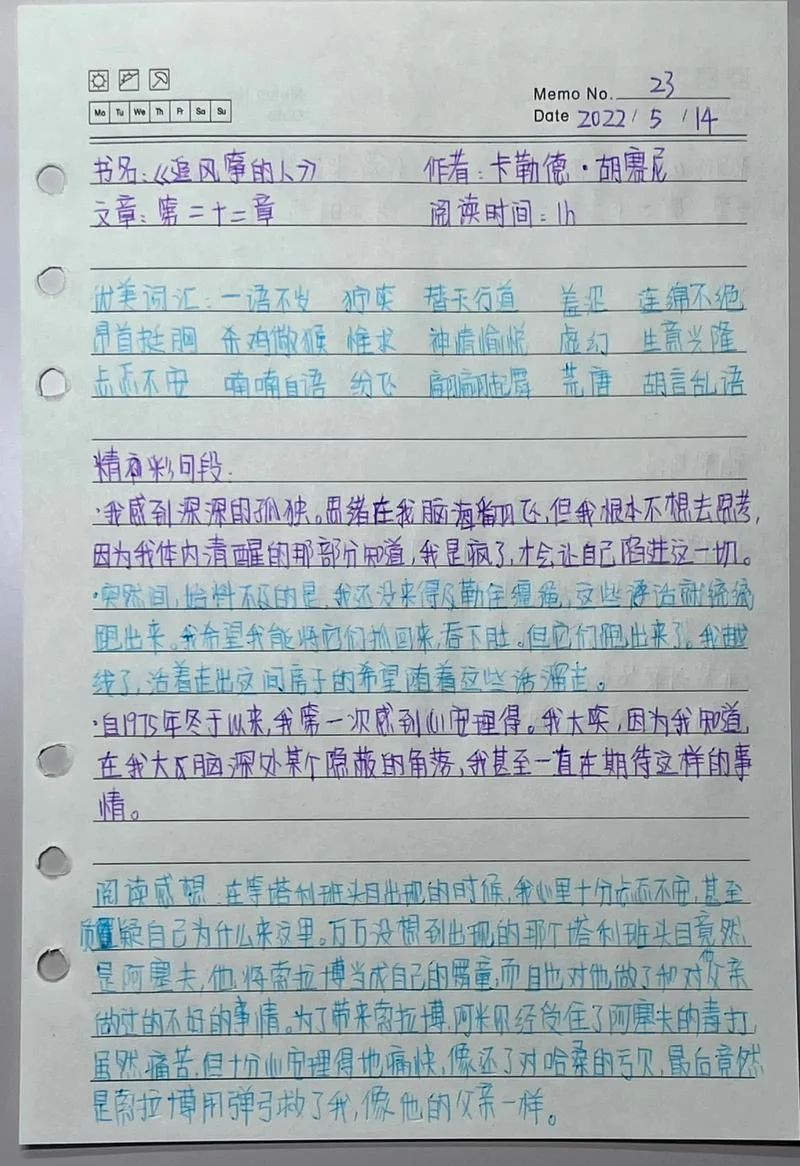 Memo No. 23
Mo Tu We Th Fr Sa Su
Date 2022 / 5 / 14
书名:《追风筝的人》 作者:卡勒德·胡赛尼
文章:第二十二章 阅读时间:1h
优美词汇:一语不发 狞笑 替天行道 羞涩 连绵不绝
昂首挺胸 杀鸡儆猴 惟求 神情愉悦 虚幻 生意兴隆
忐忑不安 喃喃自语 纷飞 翩翩起舞 荒唐 胡言乱语
精彩句段:
·我感到深深的孤独。思绪在我脑海翻飞,但我根本不想去思考,
因为我体内清醒的那部分知道,我是疯了,才会让自己陷进这一切。
·突然间,始料不及的是,我还没来得及勒住缰绳,这些话就统统
跑出来。我希望我能将它们抓回来,吞下肚。但它们跑出来了。我越
线了,活着走出这间房子的希望随着这些话溜走。
·自1975年冬于以来,我第一次感到心安理得。我大笑,因为我知道,
在我大脑深处某个隐蔽的角落,我甚至一直在期待这样的事
情。
阅读感想:在等塔利班头目出现的时候,我心里十分忐忑不安,甚至
质疑自己为什么来这里。万万没想到出现的那个塔利班头目竟然
是阿塞夫,他将索拉博当成自己的娈童,而且也对他做了和对他父亲
做过的不好的事情。为了带来索拉博,阿米尔经受住了阿塞夫的毒打,
虽然痛苦,但十分心安理得地痛快,像还了对哈桑的亏欠,最后竟然
是索拉博用弹弓救了我,像他的父亲一样。